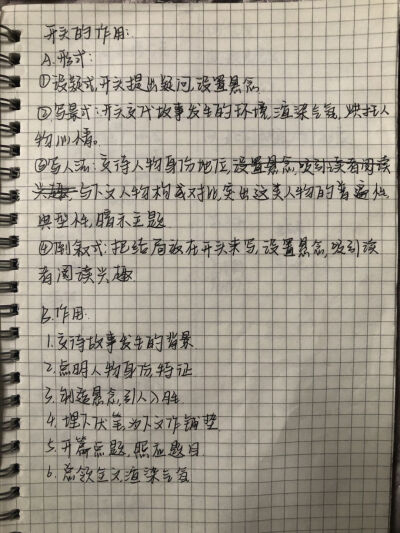 开头的作用:
A.形式:
①设疑式,开头提出疑问,设置悬念
②写景式:开头交代故事发生的环境,渲染气氛,烘托人
物心情.
③写人法:交待人物身份地位,设置悬念,吸引读者阅读
兴趣与下文人物构成对比,突出这类人物的普遍性
典型性,暗示主题.
④倒叙式:把结局放在开头来写,设置悬念,吸引读
者阅读兴趣.
B.作用:
1.交待故事发生的背景
2.点明人物身份,特征
3.制造悬念,引人入胜
4.埋下伏笔,为下文作铺垫
5.开篇点题,照应题目.
6.总领全文,渲染气氛